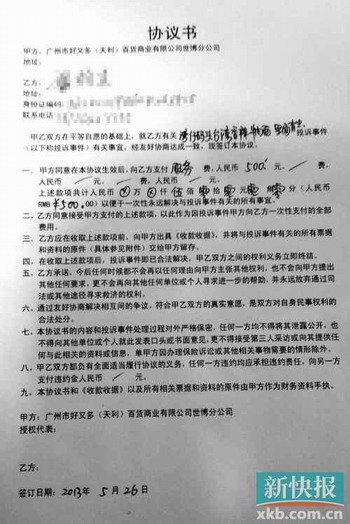 协议书
甲方:广州市好又多(天利)百货商业有限公司世博分公司
地址:
乙方:
地址:
身份证编码:
联系电话:
甲乙双方在平等自愿的基础上,就乙方有关 投诉事件
(以下称投诉事件)有关事宜,经友好协商达成一致,现签订本协议。
一、甲方同意在本协议生效后,向乙方支付 服务 费,人民币 500 元、
费,人民币 / 元、 / 费,人民币 / 元。
上述款项共计人民币(万 仟 伍佰 零拾 零元 零 分(人民币
RMB ¥500.00)以便于一次性永远解决与投诉事件有关的所有事宜。
二、乙方同意接受甲方支付的上述款项,以此作为因投诉事件甲方向乙方一次性支付的全部
费用。
三、乙方应在收取上述款项前,向甲方出具《收款收据》,并将与投诉事件有关的所有票据
和资料的原件(具体参见附件)交给甲方留存。
四、在收取上述款项后,投诉事件即已合法解决,甲乙双方之间的权利义务立即终结。
五、乙方承诺,今后任何时候都不会再以任何理由向甲方主张其他权利,也不会向甲方提出
其他任何要求,更不会再向其他任何单位或个人寻求进一步的帮助,并永远放弃通过司
法或其他途径寻求救济的权利。
六、通过友好协商解决相互间的争议,符合甲乙双方的真实意愿,是双方对自身民事权利的
合法处分。
七、本协议书的内容和投诉事件处理过程对外严格保密,任何一方均不得将其泄露公开,也
不得向其他单位或个人就此发表口头或书面意见,更不得接受第三人采访或向其提供任
何与此相关的资料或信息,单甲方因办理保险诉讼或其他相关事物需要的情形除外。
八、甲乙双方都负有全面适当履行协议的义务,任何一方违约均应承担违约责任,向另一方
支付违约金人民币 / 元。
九、本协议书和《收款收据》以及所有相关票据和资料的原件由甲方作为财务资料手执。
甲方:广州市好又多(天利)百货商业有限公司世博分公司
授权代表:
乙方:
签订日期:2013年 5 月 26 日
新快报
xkb.com.cn